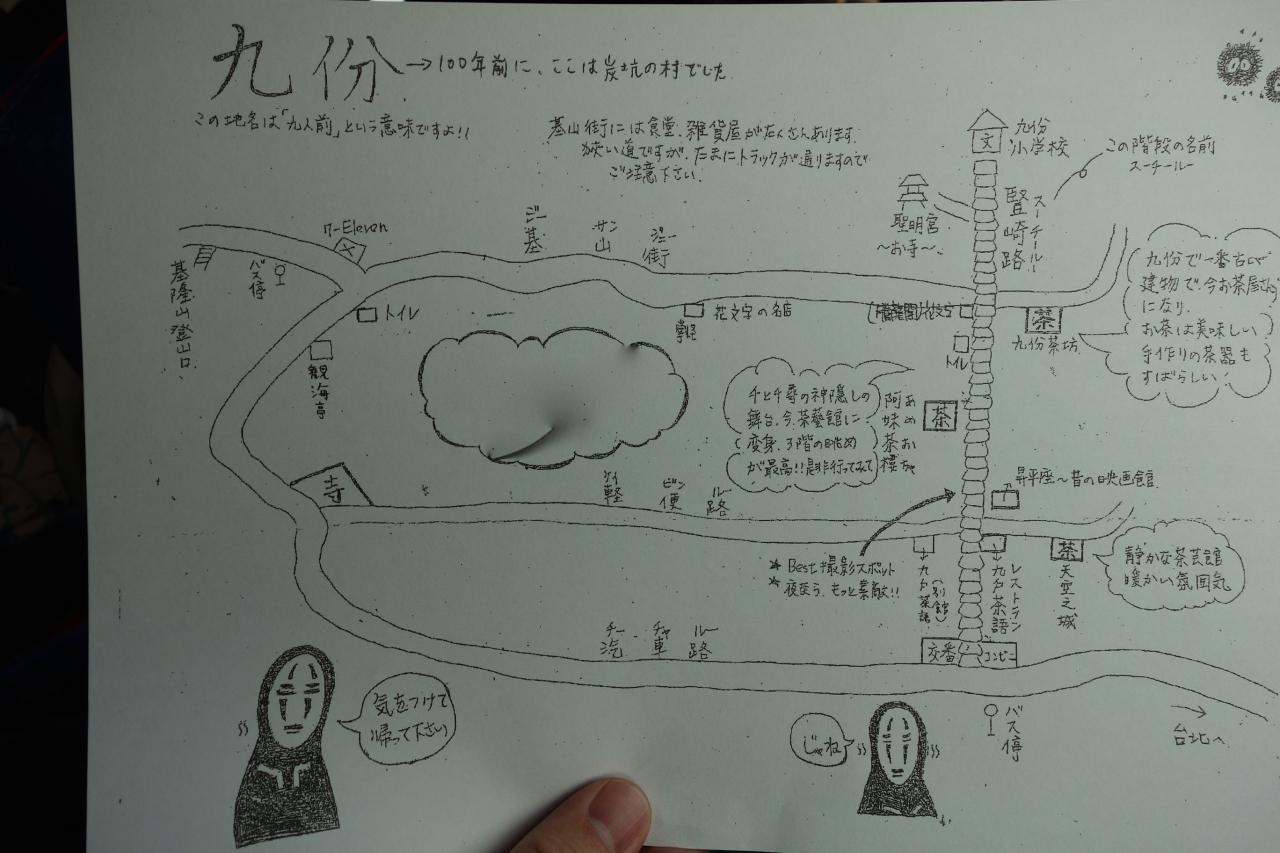 九份→100年前に、ここは炭坑の村でした
この地名は「九人前」という意味ですよ!!
基山街には食堂、雑貨屋がたくさんあります。
狭い道ですが、たまにトラックが通りますので
ご注意下さい。
文
九份
小学校
この階段の名前
スーチールー
賢崎路
スーチールー
聖明宮
〜お寺〜
7-Eleven
基隆山登山口
バス停
ジー サン ジェー
基山街
トイレ
観海亭
花文字の名店
トイレ
茶
九份茶坊
九份で一番古い
建物で、今お茶屋さん
になり、
お茶は美味しい
手作りの茶器も
すばらしい!
千と千尋の神隠しの
舞台、今茶藝館に
変身、3階の眺め
が最高!!是非行ってみて
阿妹茶樓
あめおちゃ
茶
寺
ケイ ビン ルー
軽便路
昇平座〜昔の映画館
★Best撮影スポット
★夜なら、もっと素敵!!
九戸茶語
(別館)
レストラン
九戸茶語
茶
天空之城
静かな茶芸館
暖かい氛囲気
チー チャ ルー
汽車路
交番
コンビニ
バス停
台北へ
気をつけて
帰って下さい
じゃね